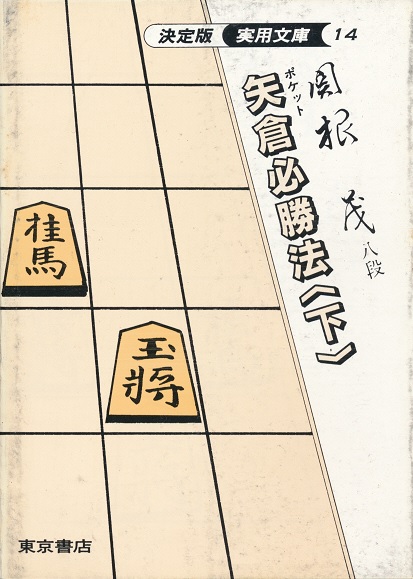 決定版 実用文庫 14
関根 茂 八段
ポケット
矢倉必勝法〈下〉
桂馬
玉将
東京書店